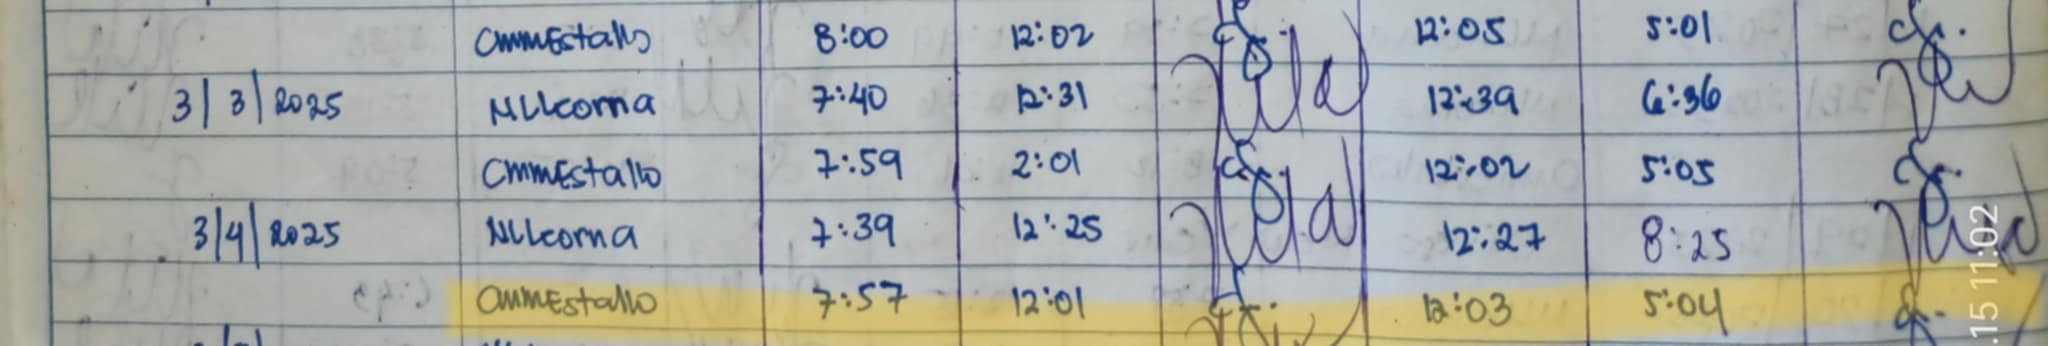 CMMEstallo 8:00 12:02 12:05 5:01
3/3/2025 NLLcorna 7:40 12:31 12:39 6:36
CMMEstallo 7:59 2:01 12:02 5:05
3/4/2025 NLLcorna 7:39 12:25 12:27 8:25
CMMEstallo 7:57 12:01 12:03 5:04
.15 11:02